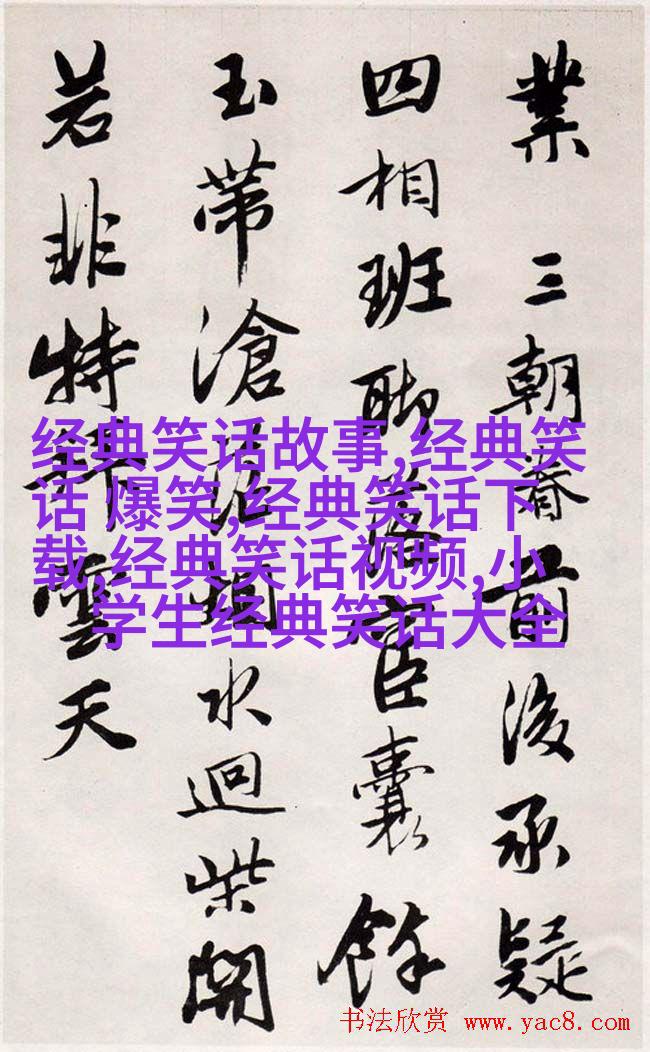 業 三朝眷前後承疑
四相班聊宦囊餘
玉帶滄水迴柴
若非特雲天
经典笑话故事,经典笑
话 爆笑,经典笑话下
载,经典笑话视频,小
学生经典笑话大全
书法欣赏 www.yac8.com